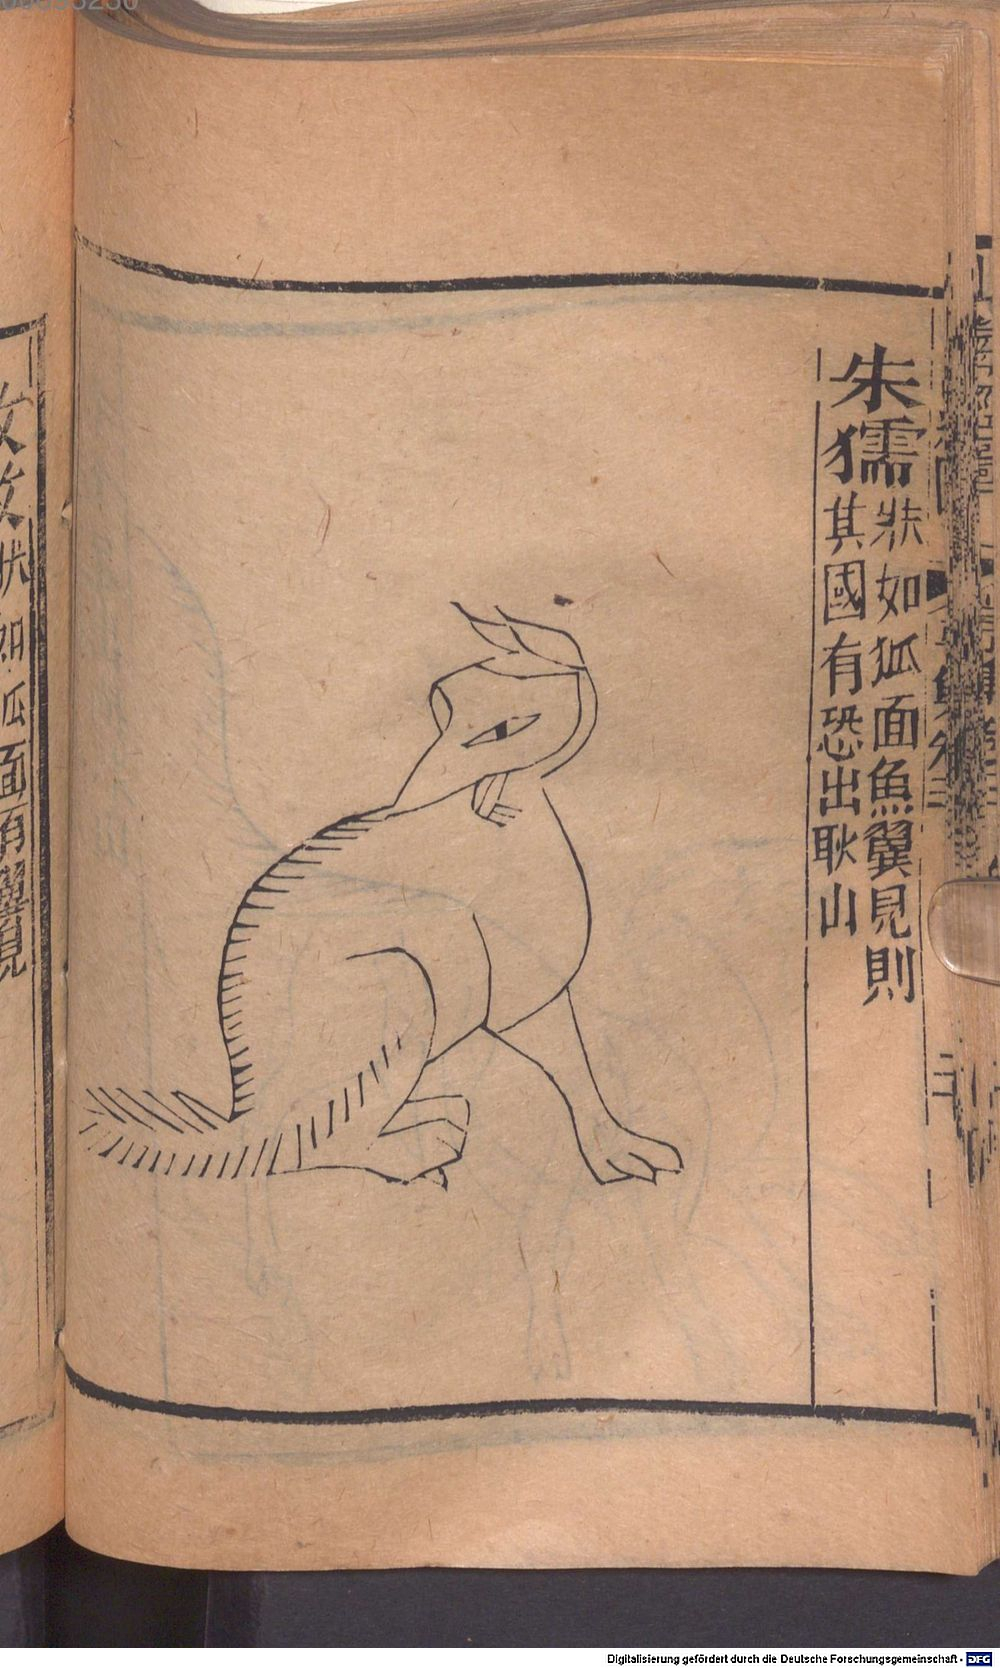 朱獳
狀如狐面魚翼見則
其國有恐出耿山
狀如狐面有翼見
Digitalisierung gefördert durch die Deutsche Forschungsgemeinschaft - DFG